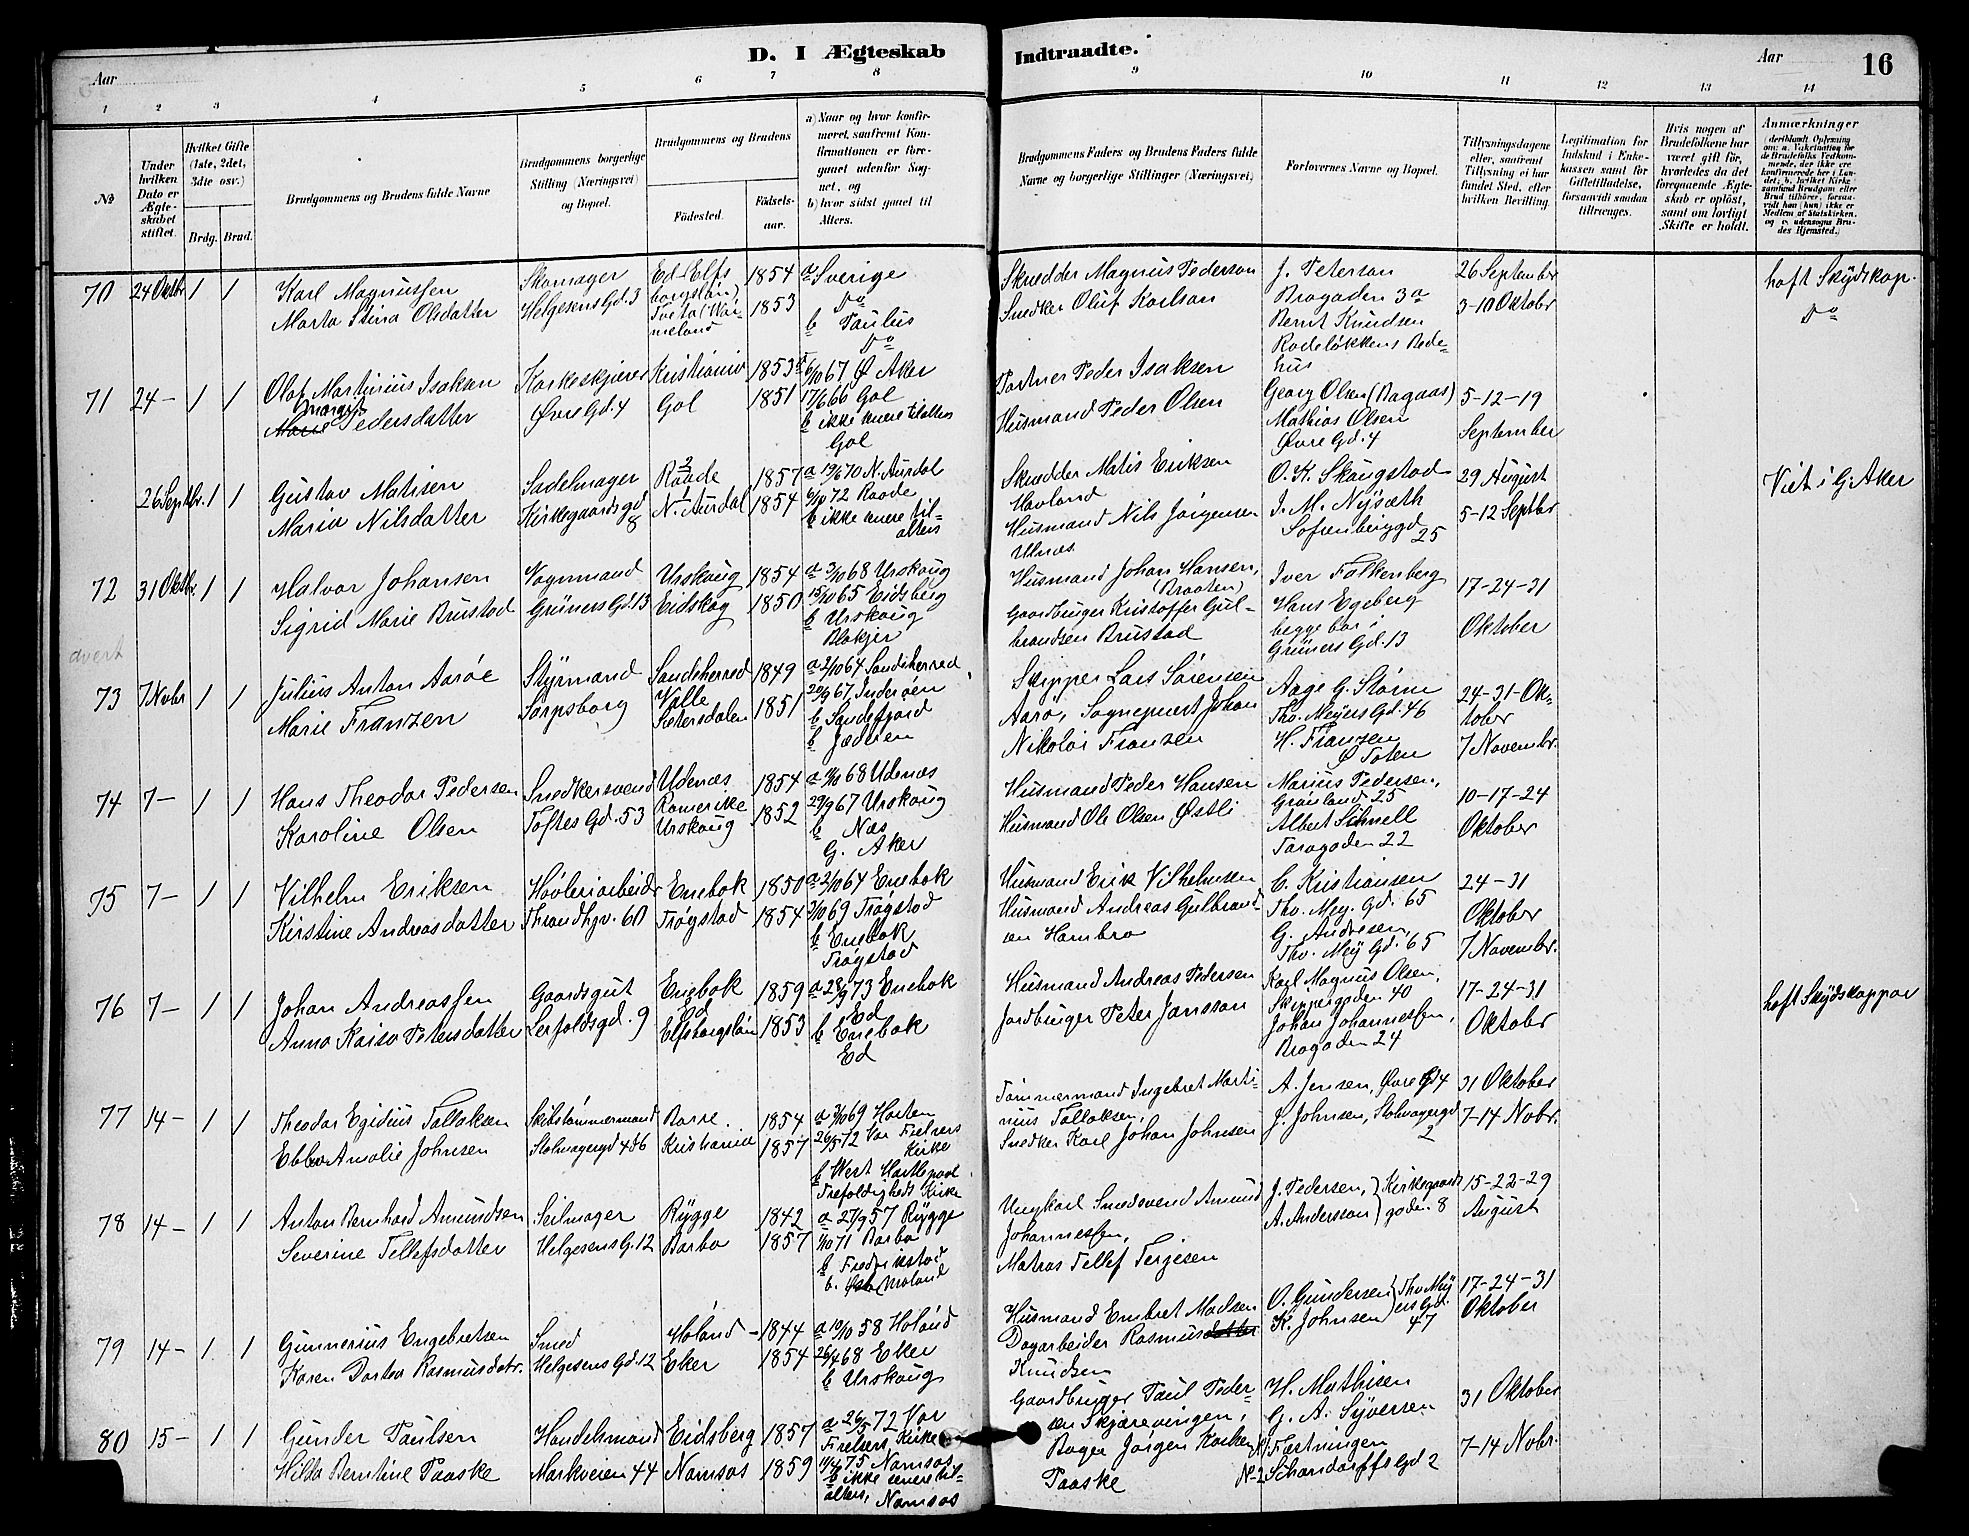 D. I Ægteskab Indtraadte.
Aar
Aar
16
1 2 3 4 5 6 7 8 9 10 11 12 13 14
№
Under hvilken Dato er Ægteskabet stiftet.
Hvilket Gifte (1ste, 2det, 3die osv.)
Brdg. Brud.
Brudgommens og Brudens fulde Navne
Brudgommens borgerlige Stilling (Næringsvei) og Bopæl.
Brudgommens og Brudens
Fødested.
Fødselsaar.
a) Naar og hvor konfirmeret, saafremt Konfirmationen er foregaaet udenfor Sognet, og
b) hvor sidst gaaet til Alters.
Brudgommens Faders og Brudens Faders fulde Navne og borgerlige Stillinger (Næringsvei)
Forlovernes Navne og Bopæl.
Tillysningsdagene eller, saafremt Tillysning ei har fundet Sted, efter hvilken Bevilling.
Legitimation for Indskud i Enkekassen samt for Giftetilladelse, forsaavidt saadan tiltrænges.
Hvis nogen af Brudefolkene har været gift før, hvorledes da det foregaaende Ægteskab er opløst, samt om lovligt Skifte er holdt.
Anmærkninger
70 24 Oktbr. 1 1
Karl Magnussen
Marta Stina Olsdatter
Skomager
Helgesens Gd. 3
Ed Elfsborgslän)
Tveta (Wärmeland
1854
1853
a Sverige
Do
b Paulus
Do
Skrædder Magnus Pederson
Snedker Oluf Karlson
J. Peterson
Brogaden 3a
Bernt Knudsen
Rodeløkkens Bedehus
26 September
3-10 Oktobr
haft Skydskop.
Do
71 24 - 1 1
Olaf Martinius Isaksen
Margit
Marie Pedersdatter
Korkeskjærer
Øvre Gd. 4
Kristiania
Gol
1853
1851
a 6/10 67 Ø Aker
17/6 66 Gol
b ikke senere tilalters
Gol
Portner Peder Isaksen
Husmand Peder Olsen
Georg Olsen (Bagaas)
Mathias Olsen
Øvre Gd. 4
5-12-19
September
26 Septbr. 1 1
Gustav Matisen
Maria Nilsdatter
Sadelmager
Kirkegaardsgd 8
2 Raade
1 N. Aurdal
1857
1854
a 19/6 70 N. Aurdal
6/10 72 Raade
b ikke senere tilalters
Skrædder Matis Eriksen
Havland
Husmand Nils Jørgensen
Ulnæs
O. K. Skaugstad
J. M. Nysæth
Sofienberggd 25
29 August
5-12 Septbr
Viet i G. Aker
72 31 Oktbr. 1 1
Halvor Johansen
Sigrid Marie Brustad
Vognmand
Grüners Gd. 13
Urskoug
Eidskog
1854
1850
a 3/10 68 Urskoug
15/10 65 Eidsberg
b Urskoug
Blakjer
Husmand Johan Hansen,
(Braaten)
Gaardbruger Kristoffer Gulbrandsen Brustad
Iver Falkenberg
Hans Egeberg
begge bor i
Grüners Gd. 13
17-24-31
Oktober
73 7 Nobr 1 1
Julius Anton Aarøe
Marie Franzen
Styrmand
Sarpsborg
Sandeherred
Valle
Sætersdalen
1849
1851
a 2/10 64 Sandeherred
29/9 67 Inderøen
b Sandefjord
b Jæderen
Skipper Lars Sørensen
Aarø, Sogneprest Johan
Nikolai Franzen
Aage G. Størm
Thv. Meyers Gd. 46
H. Franzen
Ø Toten
24-31-Oktober
7 Novembr.
74 7 - 1 1
Hans Theodor Pedersen
Karoline Olsen
Snedkersvend
Toftes Gd. 53
Udenæs
Romerike
Urskoug
1854
1852
a 11/10 68 Udenæs
29/9 67 Urskoug
b Næs
G. Aker
Husmand Peder Hansen
Husmand Ole Olsen Østli
Marius Pedersen,
Grønland 25
Albert Schnell
Torvgaden 22
10-17-24
Oktober
75 7 - 1 1
Vilhelm Eriksen
Kirstine Andreasdatter
Høvleriarbeider
Throndhjv. 60
Enebok
Trøgstad
1850
1854
a 2/10 64 Enebok
3/10 69 Trøgstad
b Enebok
Trøgstad
Husmand Erik Vilhelmsen
Husmand Andreas Gulbrandsen Hambro
C. Kristiansen
Thv. Mey. Gd. 65
G. Andresen,
Thv. Mey Gd. 65
24-31
Oktober
7 Novembr.
76 7 - 1 1
Johan Andreassen
Anna Kaisa Petersdatter
Gaardsgut
Leirfaldsgd. 9
Enebok
Ed
Elfsborgslän
1859
1853
a 28/9 73 Enebok
Ed
b Enebok
Ed
Husmand Andreas Pedersen
Jordbruger Peter Jansson
Karl Magnus Olsen,
Skippergaden 40
Johan Johannessen,
Brogaden 24
17-24-31
Oktobr
haft Skydskoppar
77 14 - 1 1
Theodor Egidius Tallaksen
Ebba Amalie Johnsen
Skibstømmermand
Stolmagergd 4 & 6
Borre
Kristiania
1854
1857
a 3/10 69 Horten
26/5 72 Vor Frelsers Kirke
b West Hartlepool
Trefoldigheds Kirke
Tømmermand Ingebret Martinius Tallaksen,
Snedker Karl Johan Johnsen
A. Jensen, Øvre Gd 4
J. Johnsen, Stolmagergd 2
31 Oktober
7-14 Nobr.
78 14 - 1 1
Anton Bernhard Amundsen
Severine Tellefsdatter
Seilmager
Helgesens G. 12
Rygge
Barbo
1842
1857
a 27/9 57 Rygge
1/10 71 Barbo
b Fredrikstad
b. Østre Moland
Ungkarl Smedsvend Amund
Johannessen,
Matros Tellef Terjesen
J. Pedersen, } Kirkegaards
A. Andersson } gaden 8
15-22-29
August
79 14 - 1 1
Gunnerius Engebretsen
Karen Dortea Rasmusdatr.
Smed
Helgesens Gd. 12
Høland
Eker
1844
1854
a 10/10 58 Høland
26/4 68 Eker
b Urskoug
Husmand Embret Madsen
Dagarbeider Rasmus
Knudsen
O. Gundersen } Thv Mey
K. Johnsen } ers Gd. 47
17-24-31
Oktober
80 15 - 1 1
Gunder Paulsen
Hilda Berntine Paaske
Handelsmand
Markveien 44
Eidsberg
Namsos
1857
1859
a 26/5 72 Vor
Frelsers Kirke
11/4 75 Namsos
b ikke senere tilalters,
Namsos
Gaardbruger Paul Pedersen Skjærevingen,
Bager Jørgen Kocken
Paaske
H. Mathisen
G. A. Syversen
№1 Fæstningen
№2 Schandorffs Gd 2
31 Oktober
7-14 Nobr.